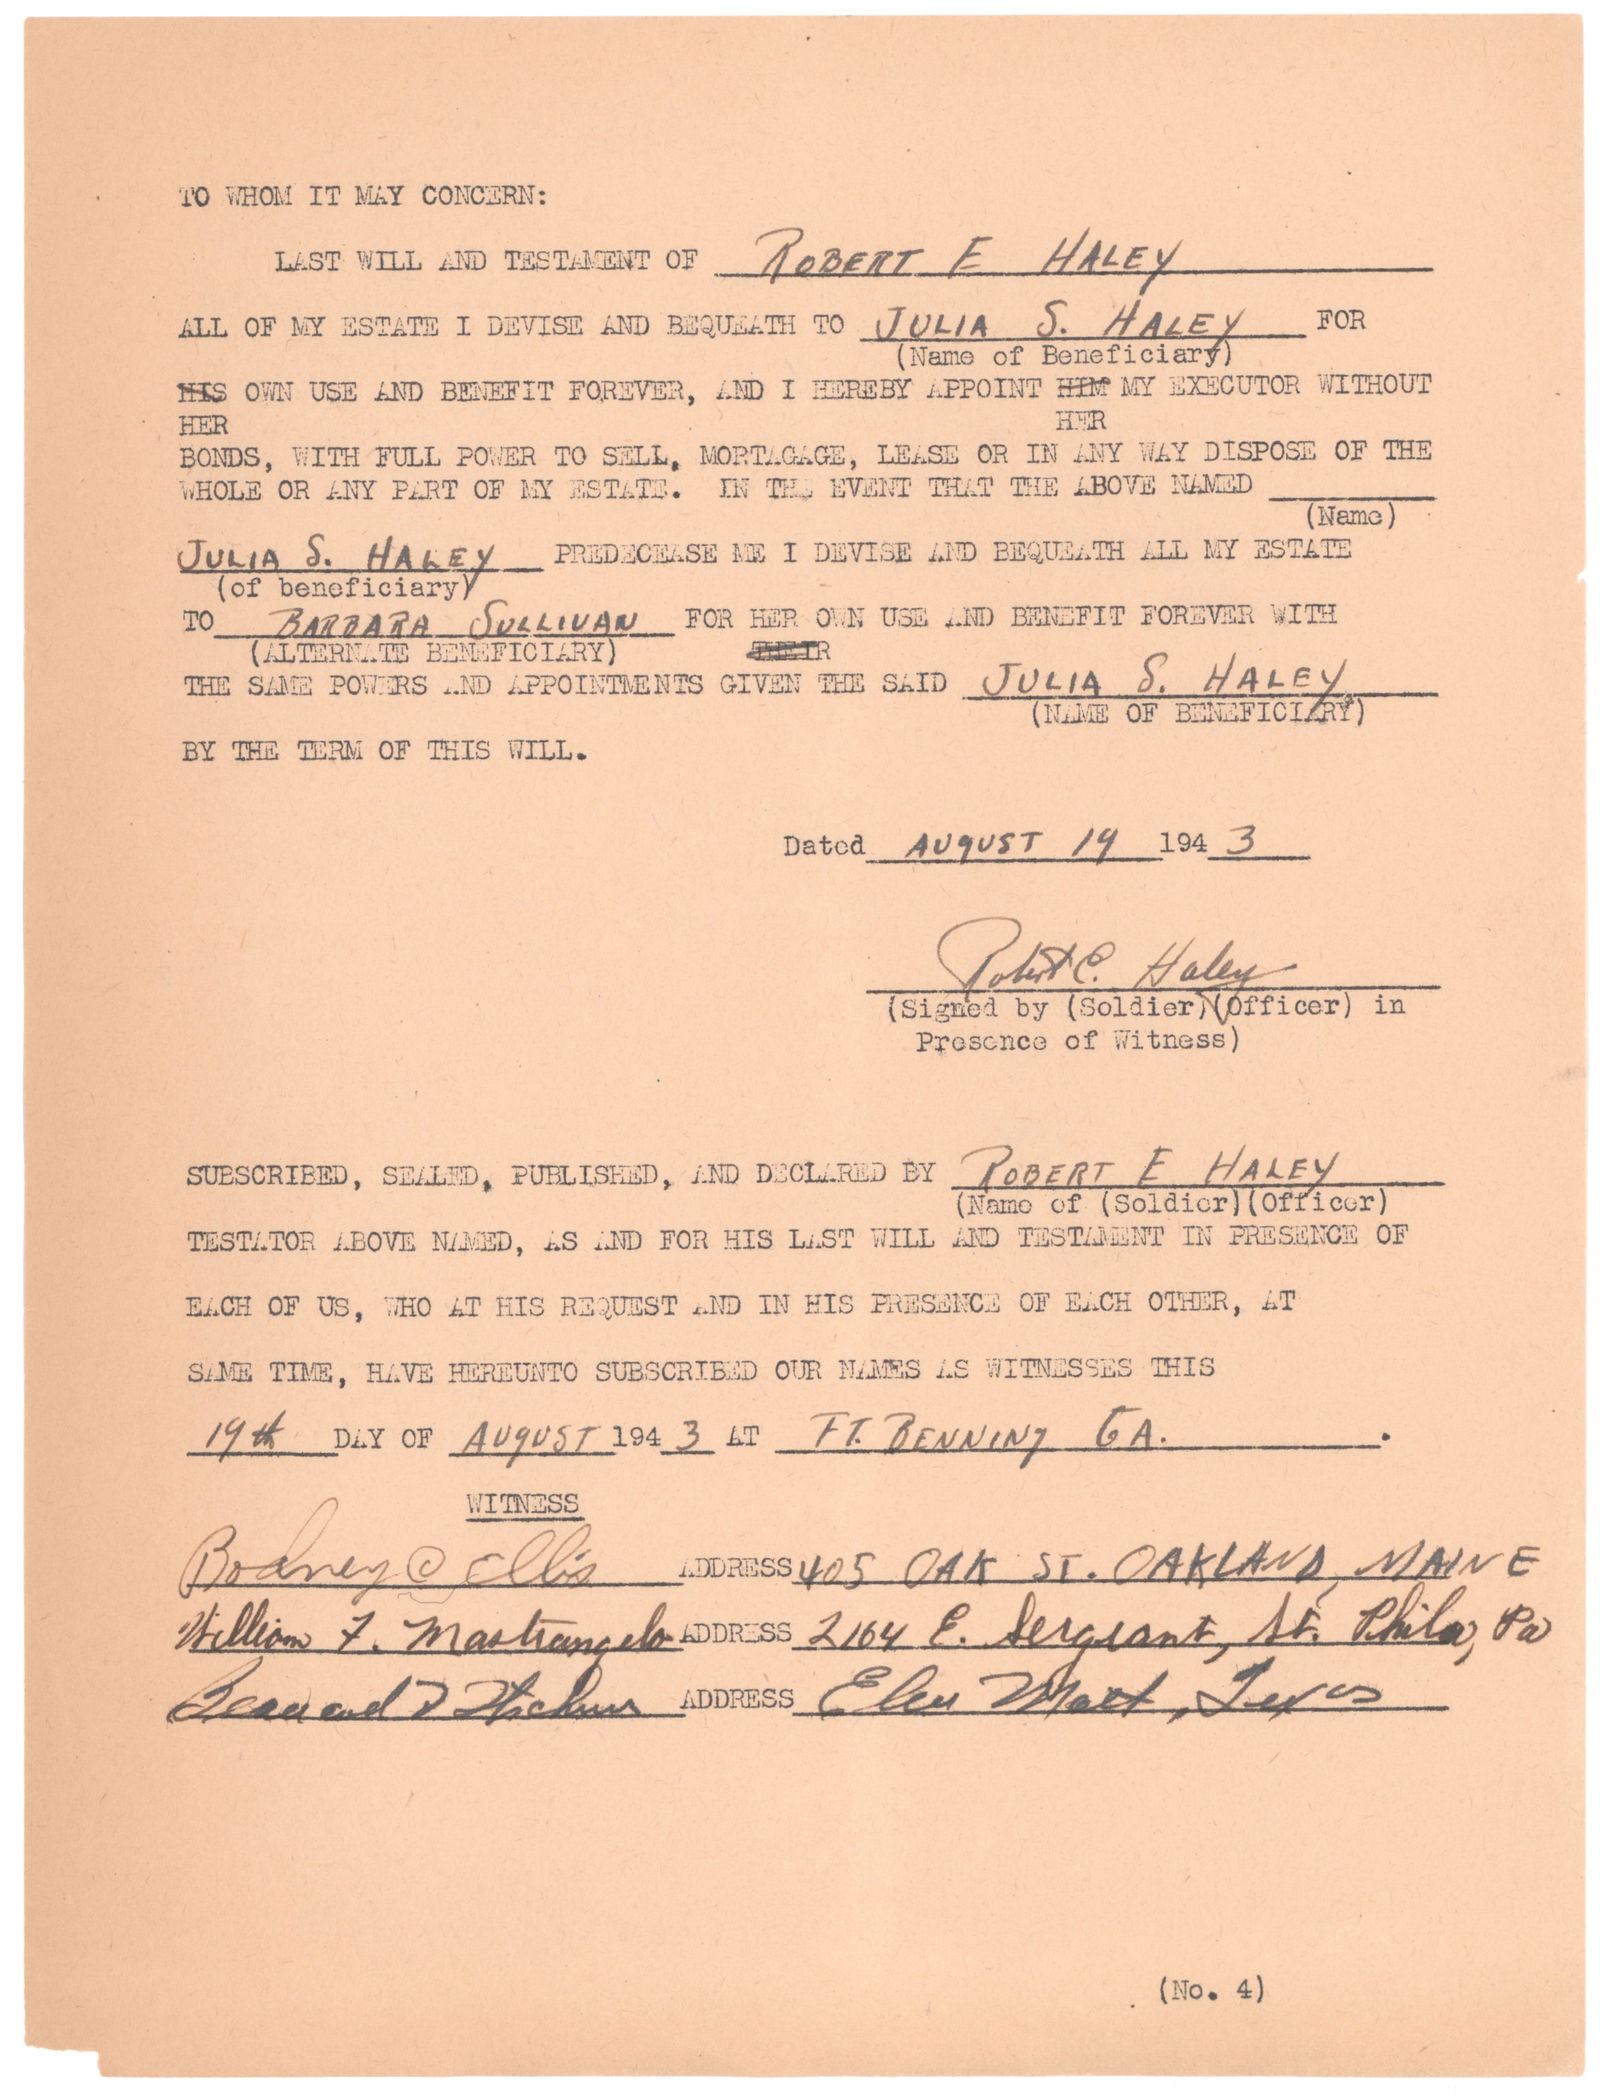 TO WHOM IT MAY CONCERN:
LAST WILL AND TESTAMENT OF ROBERT E HALEY
ALL OF MY ESTATE I DEVISE AND BEQUEATH TO JULIA S. HALEY FOR
(Name of Beneficiary)
HIS OWN USE AND BENEFIT FOREVER, AND I HEREBY APPOINT HIM MY EXECUTOR WITHOUT
HER HER
BONDS, WITH FULL POWER TO SELL, MORTAGAGE, LEASE OR IN ANY WAY DISPOSE OF THE
WHOLE OR ANY PART OF MY ESTATE. IN THE EVENT THAT THE ABOVE NAMED
(Name)
JULIA S. HALEY PREDECEASE ME I DEVISE AND BEQUEATH ALL MY ESTATE
(of beneficiary)
TO BARBARA SULLIVAN FOR HER OWN USE AND BENEFIT FOREVER WITH
(ALTERNATE BENEFICIARY) THEIR
THE SAME POWERS AND APPOINTMENTS GIVEN THE SAID JULIA S. HALEY
(NAME OF BENEFICIARY)
BY THE TERM OF THIS WILL.
Dated AUGUST 19 1943
Robert E. Haley
(Signed by (Soldier)(Officer) in
Presence of Witness)
SUBSCRIBED, SEALED, PUBLISHED, AND DECLARED BY ROBERT E HALEY
(Name of (Soldier)(Officer)
TESTATOR ABOVE NAMED, AS AND FOR HIS LAST WILL AND TESTAMENT IN PRESENCE OF
EACH OF US, WHO AT HIS REQUEST AND IN HIS PRESENCE OF EACH OTHER, AT
SAME TIME, HAVE HEREUNTO SUBSCRIBED OUR NAMES AS WITNESSES THIS
19th DAY OF AUGUST 1943 AT FT. BENNING GA.
WITNESS
Rodney C Ellis ADDRESS 405 OAK ST. OAKLAND, MAINE
William F. Mastrangelo ADDRESS 2164 E. Sergeant, St. Phila, Pa
ADDRESS Texas
(No. 4)